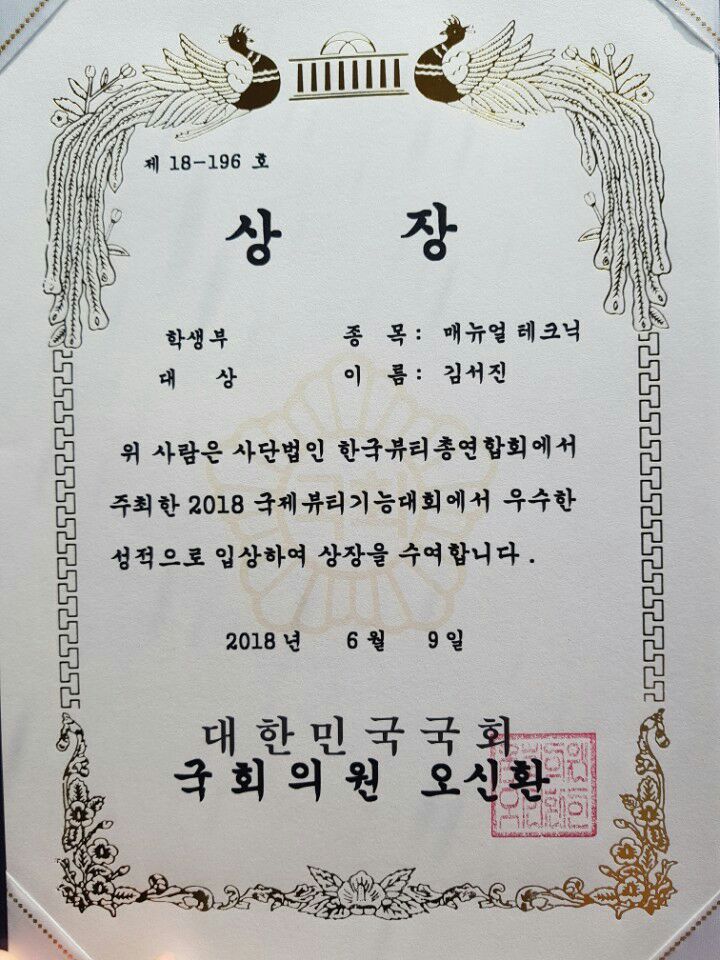 제 18-196 호
상 장
학생부 종 목 : 매뉴얼 테크닉
대 상 이 름 : 김서진
위 사람은 사단법인 한국뷰티총연합회에서
주최한 2018 국제뷰티기능대회에서 우수한
성적으로 입상하여 상장을 수여합니다.
2018 년 6 월 9 일
대한민국국회
국회의원 오신환